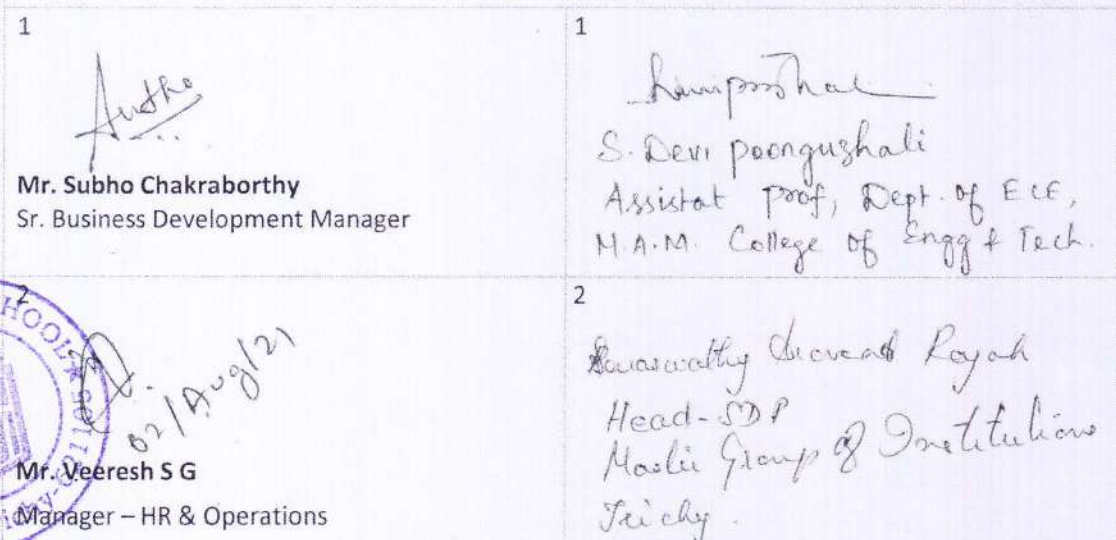 1
Mr. Subho Chakraborthy
Sr. Business Development Manager
1
S. Devi poonguzhali
Assistat prof, Dept. of ECE,
M.A.M. College of Engg & Tech.
2
HOOL
02/Aug/21
Mr. Veeresh S G
Manager – HR & Operations
2
Rajah
Head-SDP
Group of Institutions
Trichy.